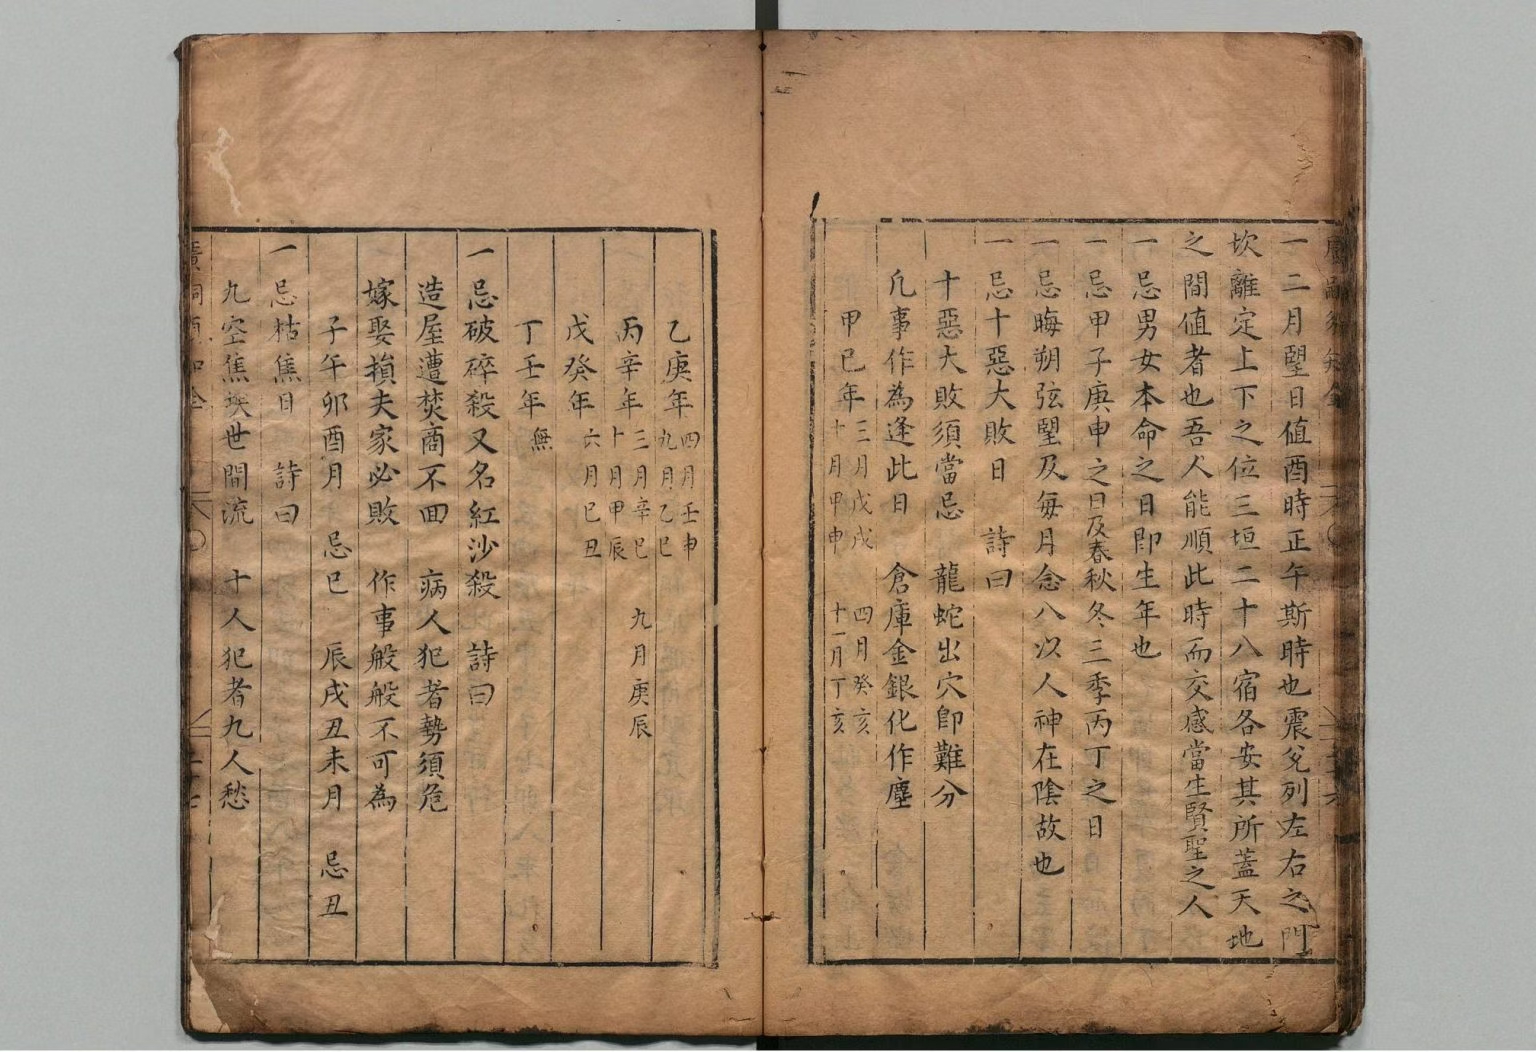 一二月朢日值酉時正午斯時也震兌列左右之門
坎離定上下之位三垣二十八宿各安其所蓋天地
之間值者也吾人能順此時而交感當生賢聖之人
一忌男女本命之日即生年也
一忌甲子庚申之日及春秋冬三季丙丁之日
一忌晦朔弦朢及每月念八以人神在陰故也
一忌十惡大敗日 詩曰
十惡大敗須當忌 龍蛇出穴即難分
凡事作為逢此日 倉庫金銀化作塵
甲巳年 三月戊戌 四月癸亥
十月甲申 十一月丁亥
乙庚年 四月壬申
九月乙巳
丙辛年 三月辛巳 九月庚辰
十月甲辰
戊癸年 六月巳丑
丁壬年 無
一忌破碎殺又名紅沙殺 詩曰
造屋遭焚商不回 病人犯者勢須危
嫁娶損夫家必敗 作事般般不可為
子午卯酉月 忌巳 辰戌丑未月 忌丑
一忌枯焦日 詩曰
九空焦 世間流 十人犯者九人愁